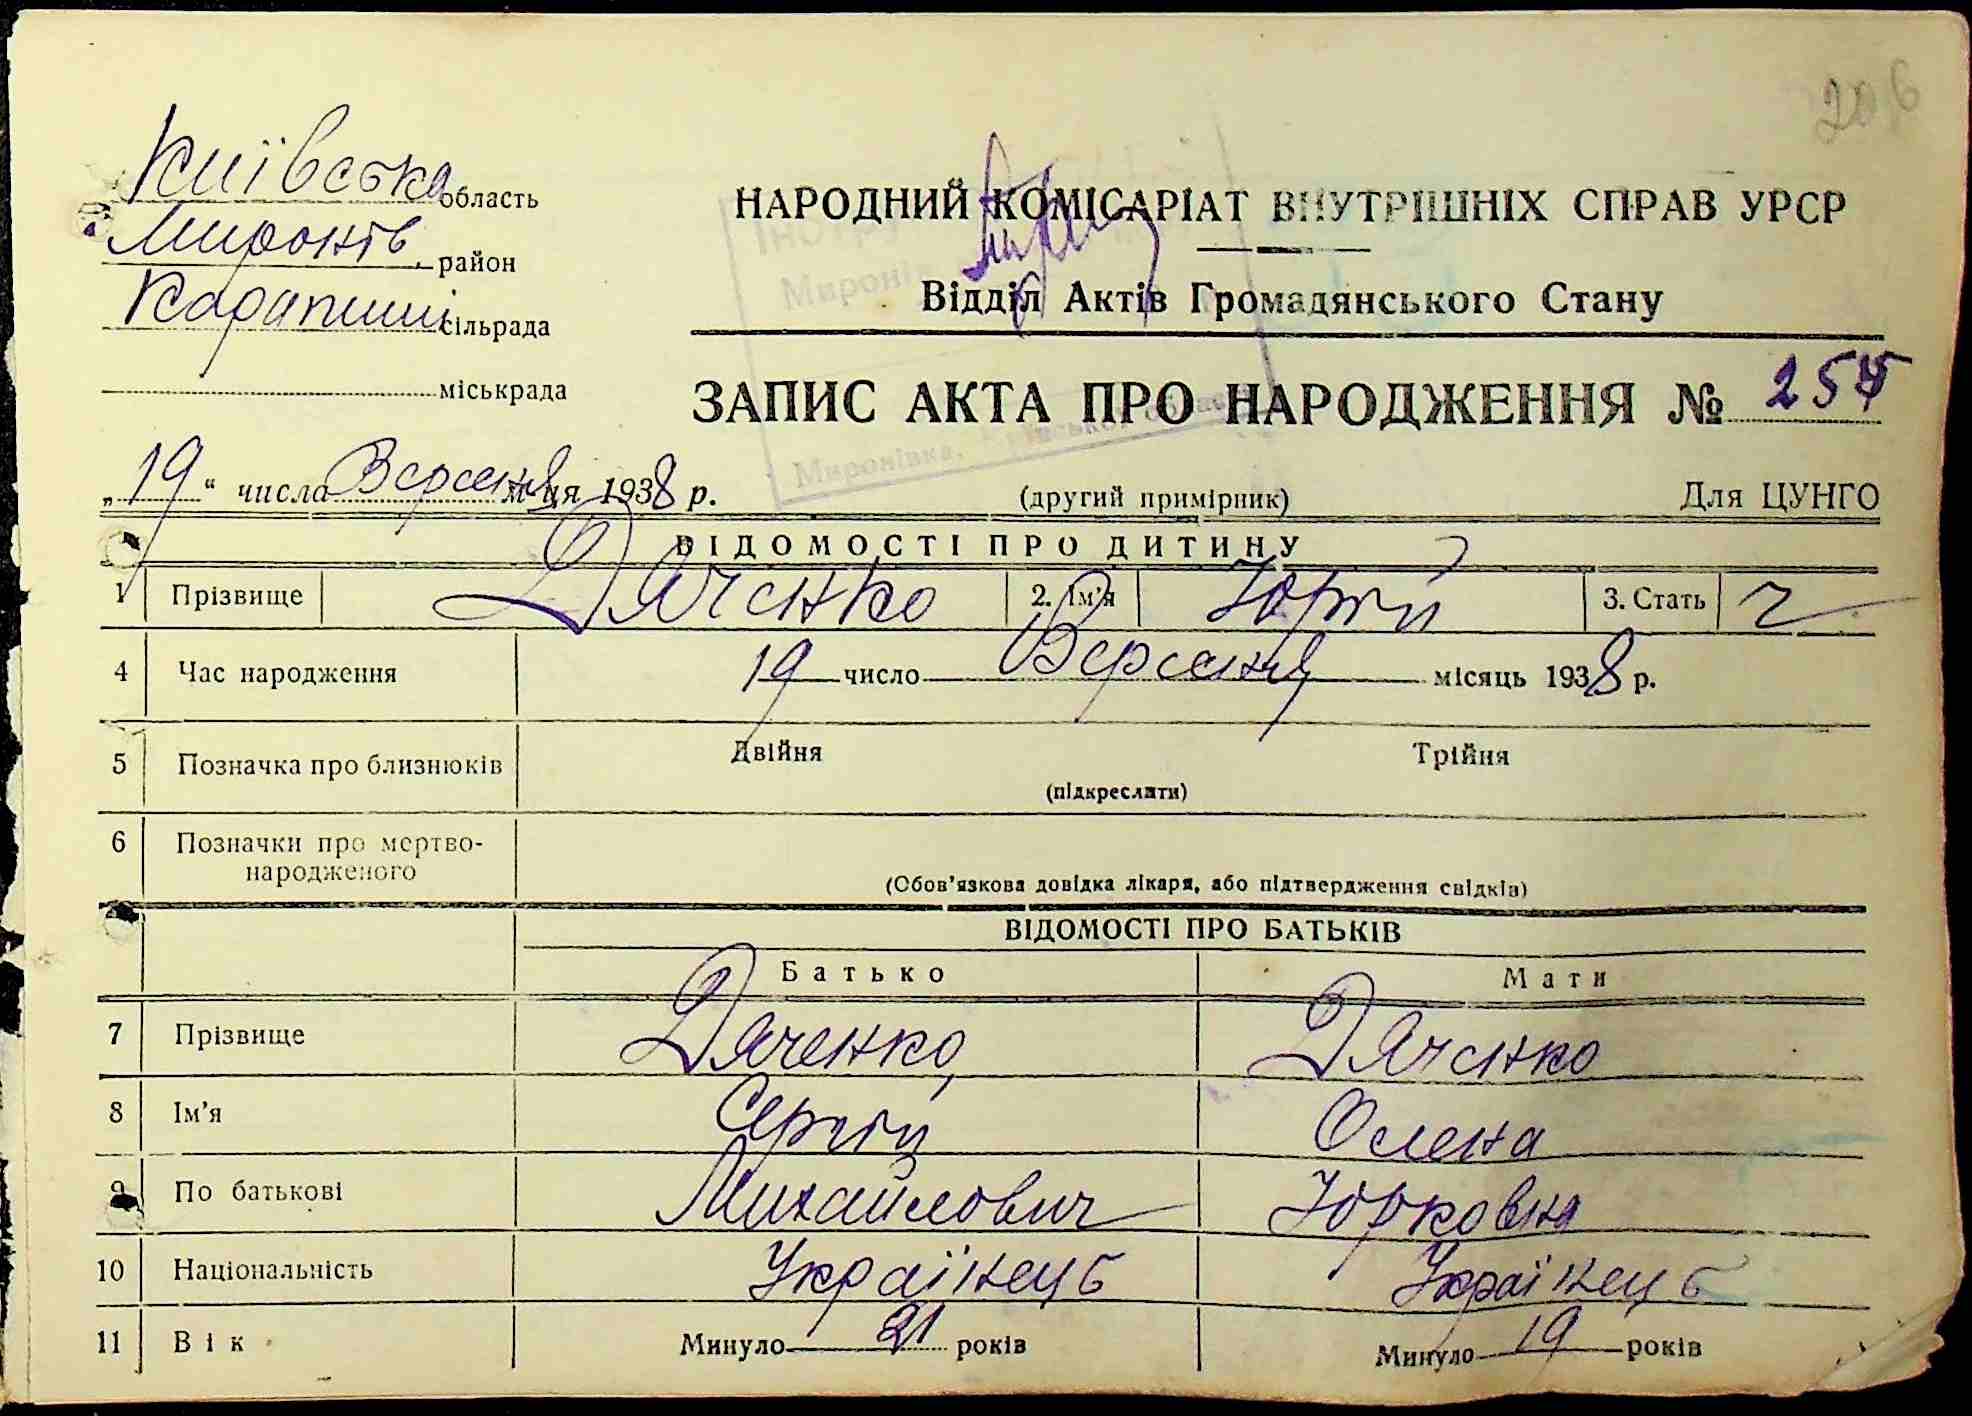 206
Київська область
Миронів. район
Карапиші сільрада
міськрада
НАРОДНИЙ КОМІСАРІАТ ВНУТРІШНІХ СПРАВ УРСР
Відділ Актів Громадянського Стану
ЗАПИС АКТА ПРО НАРОДЖЕННЯ №
„19“ числа Вересня м-ця 1938 р.
(другий примірник)
Для ЦУНГО
Миронівка, Київської
ВІДОМОСТІ ПРО ДИТИНУ
1 Прізвище Дяченко 2. Ім'я Юрій 3. Стать ч
4 Час народження 19 число Вересня місяць 1938 р.
5 Позначка про близнюків Двійня Трійня
(підкреслити)
6 Позначки про мертво-
народженого
(Обов'язкова довідка лікаря, або підтвердження свідків)
ВІДОМОСТІ ПРО БАТЬКІВ
Батько Мати
7 Прізвище Дяченко Дяченко
8 Ім'я Сергій Олена
9 По батькові Михайлович Юрковна
10 Національність Українець Українець
11 Вік Минуло 21 років Минуло 19 років